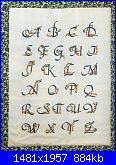 A B C D
E F G H
I J K L M
N O P Q
R S T U
V W X Y Z
1481x1957 884kb